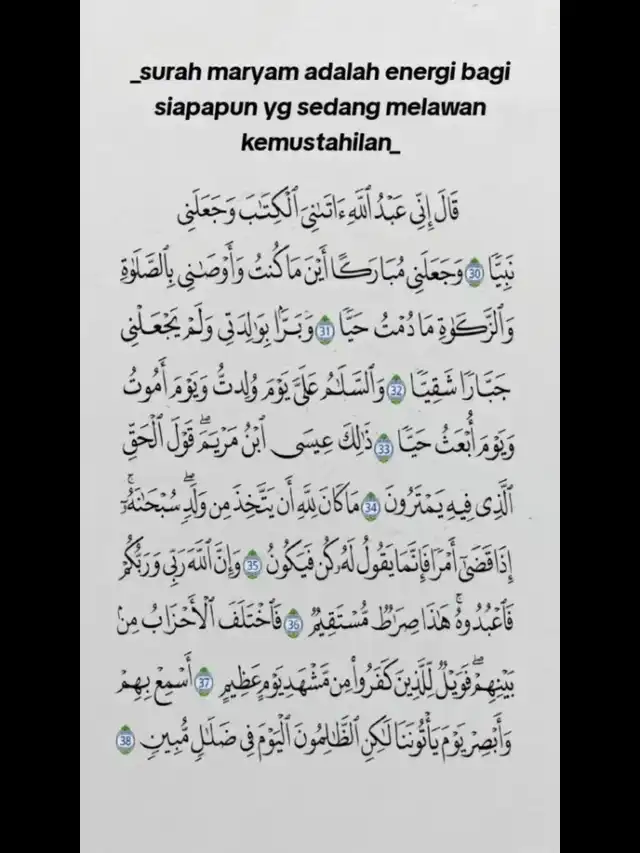 _surah maryam adalah energi bagi
siapapun yg sedang melawan
kemustahilan_
قَالَ إِنِّي عَبْدُ ٱللَّهِ ءَاتَىٰنِيَ ٱلْكِتَـٰبَ وَجَعَلَنِي
نَبِيًّا 30 وَجَعَلَنِي مُبَارَكًا أَيْنَ مَا كُنتُ وَأَوْصَـٰنِي بِٱلصَّلَوٰةِ
وَٱلزَّكَوٰةِ مَا دُمْتُ حَيًّا 31 وَبَرًّۢا بِوَٰلِدَتِي وَلَمْ يَجْعَلْنِي
جَبَّارًا شَقِيًّا 32 وَٱلسَّلَـٰمُ عَلَيَّ يَوْمَ وُلِدتُّ وَيَوْمَ أَمُوتُ
وَيَوْمَ أُبْعَثُ حَيًّا 33 ذَٰلِكَ عِيسَى ٱبْنُ مَرْيَمَ ۖ قَوْلَ ٱلْحَقِّ
ٱلَّذِي فِيهِ يَمْتَرُونَ 34 مَا كَانَ لِلَّهِ أَن يَتَّخِذَ مِن وَلَدٍ ۖ سُبْحَـٰنَهُۥٓ ۚ
إِذَا قَضَىٰٓ أَمْرًا فَإِنَّمَا يَقُولُ لَهُۥ كُن فَيَكُونُ 35 وَإِنَّ ٱللَّهَ رَبِّي وَرَبُّكُمْ
فَٱعْبُدُوهُ ۚ هَـٰذَا صِرَٰطٌ مُّسْتَقِيمٌ 36 فَٱخْتَلَفَ ٱلْأَحْزَابُ مِنۢ
بَيْنِهِمْ ۖ فَوَيْلٌ لِّلَّذِينَ كَفَرُوا۟ مِن مَّشْهَدِ يَوْمٍ عَظِيمٍ 37 أَسْمِعْ بِهِمْ
وَأَبْصِرْ يَوْمَ يَأْتُونَنَا لَـٰكِنِ ٱلظَّـٰلِمُونَ ٱلْيَوْمَ فِي ضَلَـٰلٍ مُّبِينٍ 38